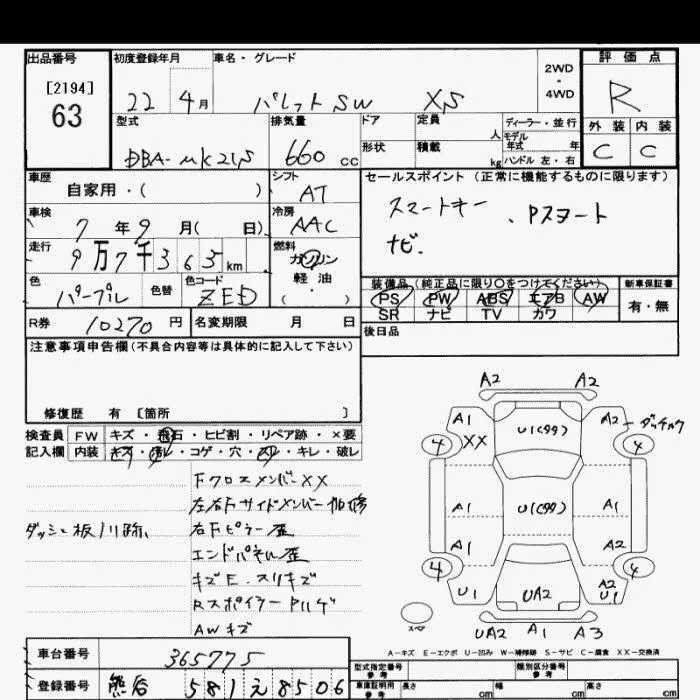 出品番号 初度登録年月 車名・グレード 2WD・4WD 評価点
[2194]
63
22 4月 パレット SW XS R
型式 排気量 ドア 定員 人 ディーラー・並行
外装 内装
形状 積載 kg モデル年式 年
ハンドル 左・右
DBA-MK21S 660 cc C C
車歴 シフト セールスポイント (正常に機能するものに限ります)
自家用・( ) AT
スマートキー、Pスタート
車検 冷房
7年9月( 日) AAC
ナビ.
走行 燃料
9万7千365km ガソリン
軽油
・( )
色 色替 色コード
パープル ZED
装備品 (純正品に限り○をつけてください) 新車保証書
PS PW ABS エアB AW 有・無
SR ナビ TV カワ
R券 10270円 名変期限 月 日
後日品
注意事項申告欄 (不具合内容等は具体的に記入して下さい)
修復歴 有 [箇所 ]
検査員 FW キズ・飛石・ヒビ割・リペア跡・×要
記入欄 内装 キズ・汚レ・コゲ・穴・スレ・キレ・破レ
Fクロスメンバー XX
左右Fサイドメンバー 曲修
右Fピラー歪
エンドパネル歪
キズE. スリキズ
Rスポイラー ハルゲ
AWキズ
A2 A2
A1 XX U1(99) A2-ダッチョク
4 4
A1 U1(99) A1
A1 A2
4 4
U1 UA2 A2 U1
スペア
UA2 A1 A3
A-キズ E-エクボ U-凹み W-補修跡 S-サビ C-腐食 XX-交換済
車台番号 365775
登録番号 581 え 8506
型式指定番号 参考 類別区分番号 参考
車庫証明用 参考 長さ cm 幅 cm 高さ cm